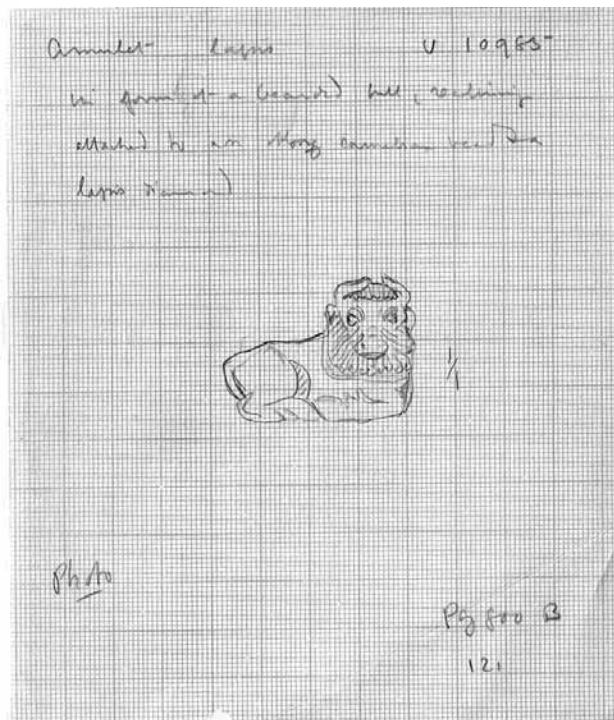 Amulet lapis U 10985
in form of a bearded bull, reclining
attached to an oblong carnelian bead & a
lapis diamond
1/1
Photo
Pg 800 B
121